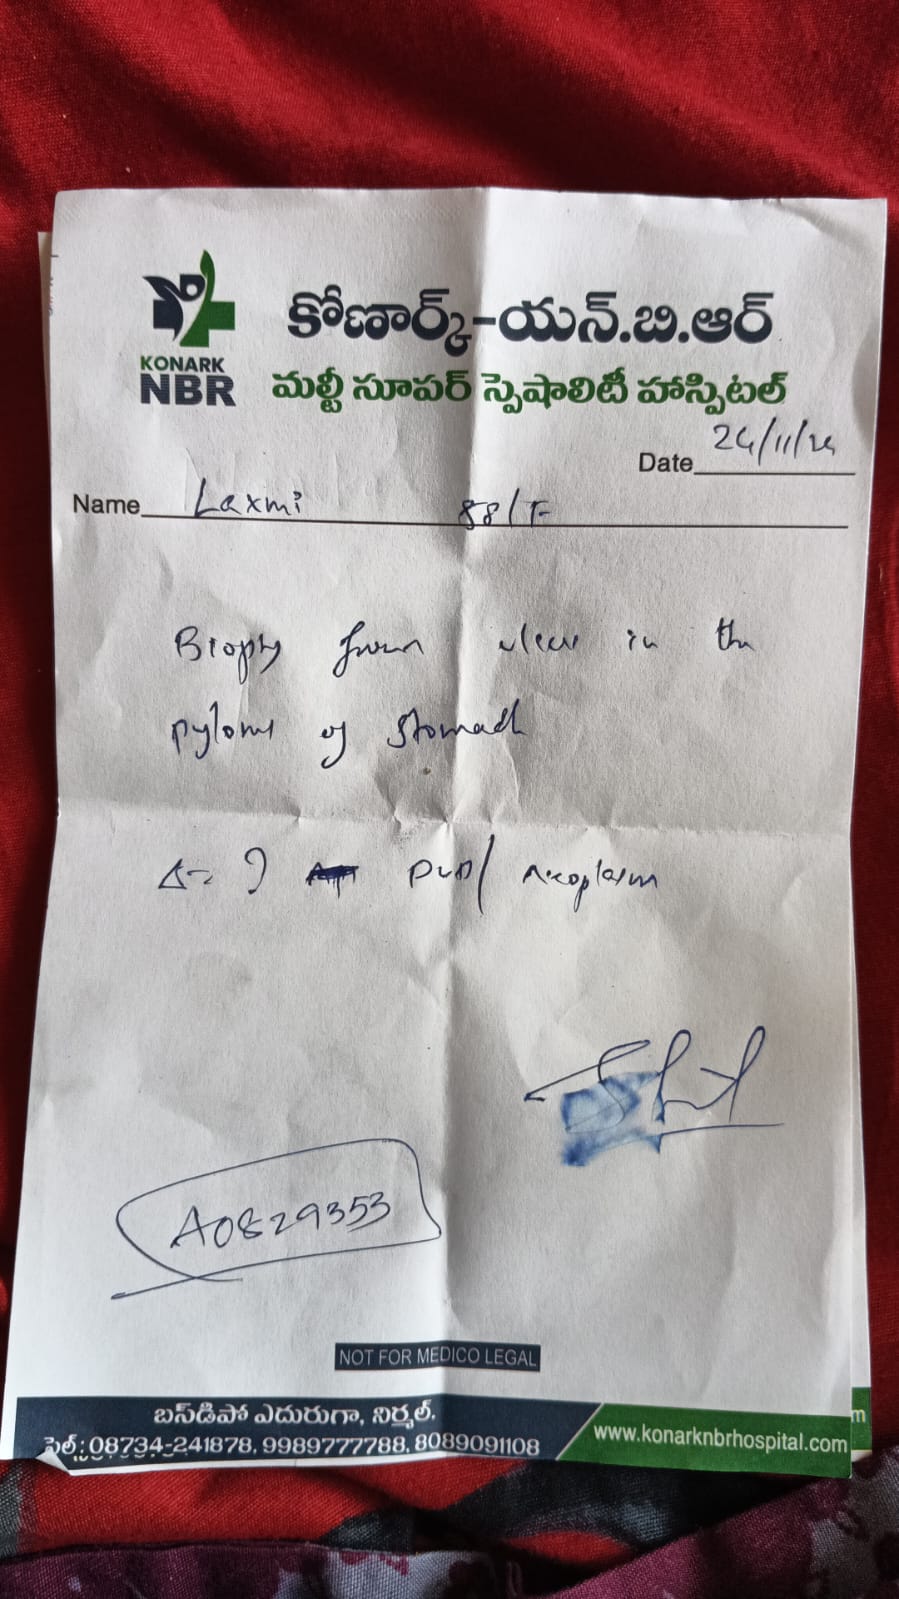 KONARK
NBR
కోణార్క్-యన్.బి.ఆర్
మల్టీ సూపర్ స్పెషాలిటీ హాస్పిటల్
Date 24/11/24
Name Laxmi 58/F
Biopsy from ulcer in the
pylorus of stomach
Δ= ? PUD/ neoplasm
A0829353
NOT FOR MEDICO LEGAL
బస్‌డిపో ఎదురుగా, నిర్మల్.
సెల్ : 08734-241878, 9989777788, 8089091108
www.konarknbrhospital.com
m